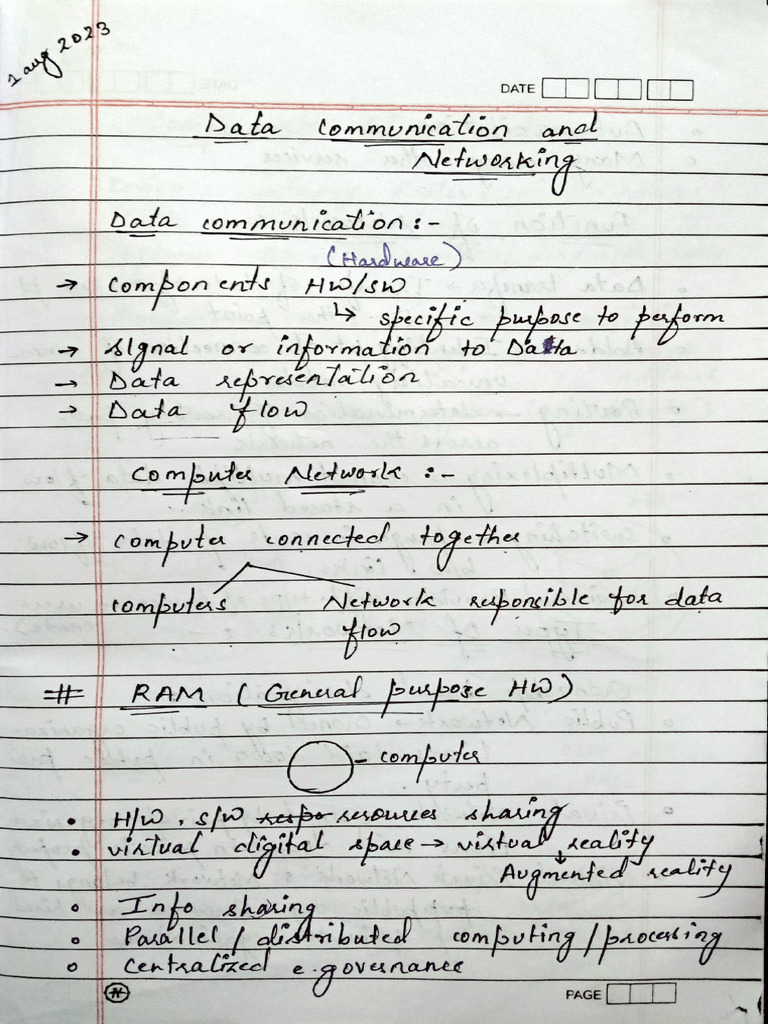 1 aug 2023
DATE
Data communication and
Networking
Data communication :-
(Hardware)
→ components HW/SW
↳ specific purpose to perform
→ signal or information to Data
→ Data representation
→ Data flow
Computer Network :-
→ computer connected together
computers Network responsible for data
flow
# RAM (General purpose HW)
- computer
• H/W, S/W respo resources sharing
• virtual digital space → virtual reality
↓
Augmented reality
• Info sharing
• Parallel / distributed computing / processing
• centralized e-governance
PAGE